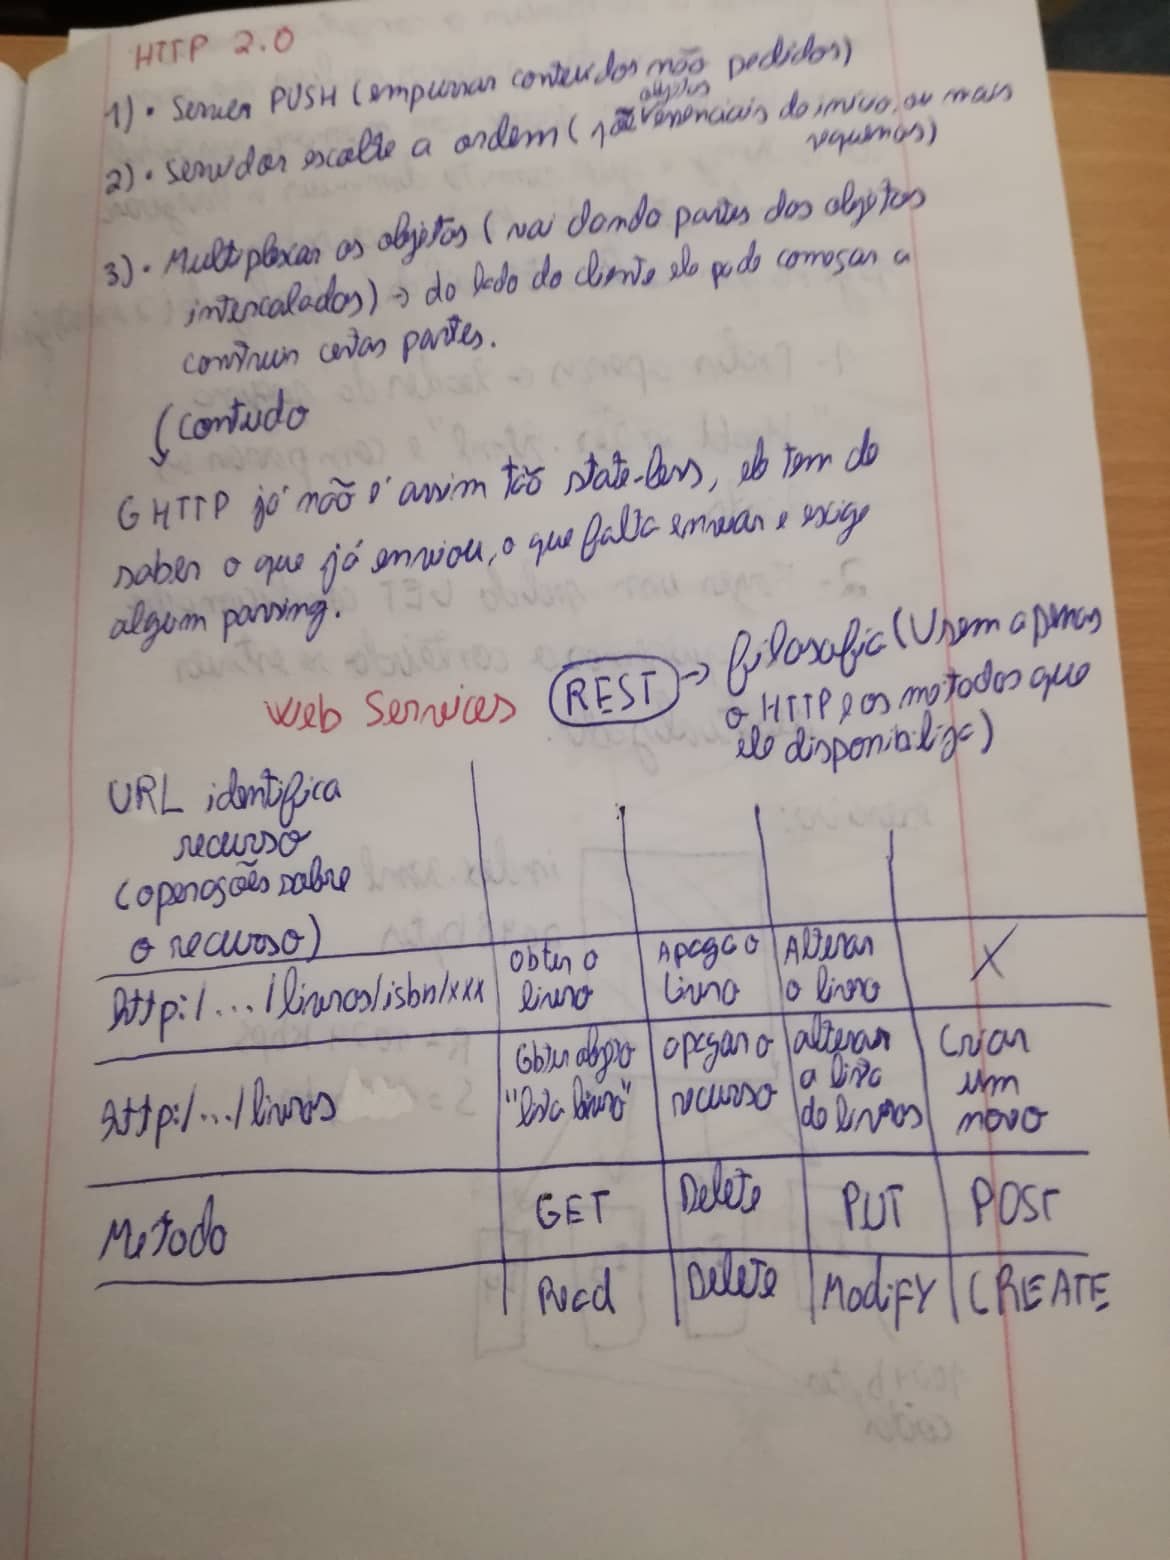 HTTP 2.0
1) • Server PUSH (empurrar conteudos não pedidos)
objetos
2) • Servidor escolhe a ordem (1º os essenciais do início, ou mais
pequenos)
3) • Multiplexar os objetos (vai dando partes dos objetos
intercalados) → do lado do cliente ele pode começar a
construir certas partes.
Contudo
O HTTP já não é assim tão state-less, ele tem de
saber o que já enviou, o que falta enviar e exige
algum parsing.
Web Services REST → filosofia (Usem apenas
o HTTP e os metodos que
ele disponibiliza)
URL identifica
recurso
(operações sobre
o recurso)
http:/.../livros/isbn/xxx | Obter o livro | Apagar o livro | Alterar o livro | X
http:/.../livros | Obter objeto "lista livro" | apagar o recurso | alterar a lista de livros | Criar um novo
Metodo | GET | Delete | PUT | POST
Read | Delete | Modify | CREATE